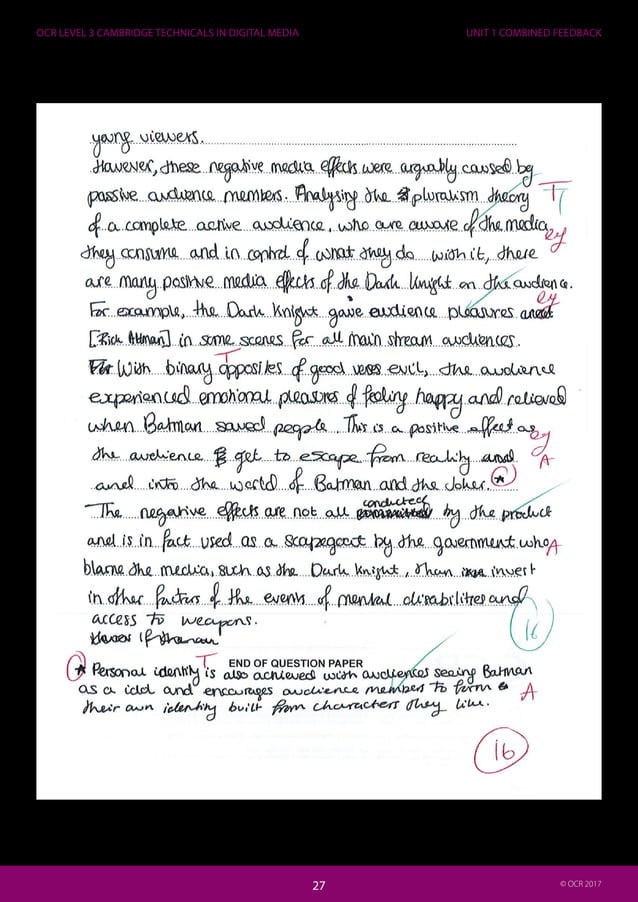 OCR LEVEL 3 CAMBRIDGE TECHNICALS IN DIGITAL MEDIA UNIT 1 COMBINED FEEDBACK
young viewers.
However, these negative media effects were arguably caused by
passive audience members. Analysing the pluralism theory T T
of a complete active audience, who are aware of the media
they consume and in control of what they do with it, there eg
are many positive media effects of the Dark Knight on the audience.
For example, the Dark Knight gave audience pleasures eg
[Rick Altman] in some scenes for all main stream audiences.
For With binary opposites of good verses evil, the audience T
experienced emotional pleasures of feeling happy and relieved
when Batman saved people. This is a positive effect as eg
the audience get to escape from reality and A
and into the world of Batman and the Joker. *
The negative effects are not all conducted by the product
and is in fact used as a scapegoat by the government who A
blame the media, such as the Dark Knight, than invest
in other factors of the events of mental disabilities and
access to weapons. 16
END OF QUESTION PAPER
* Personal identity is also achieved with audiences seeing Batman T
as a idol and encourages audience members to form A
their own identity built from characters they like.
16
27 © OCR 2017